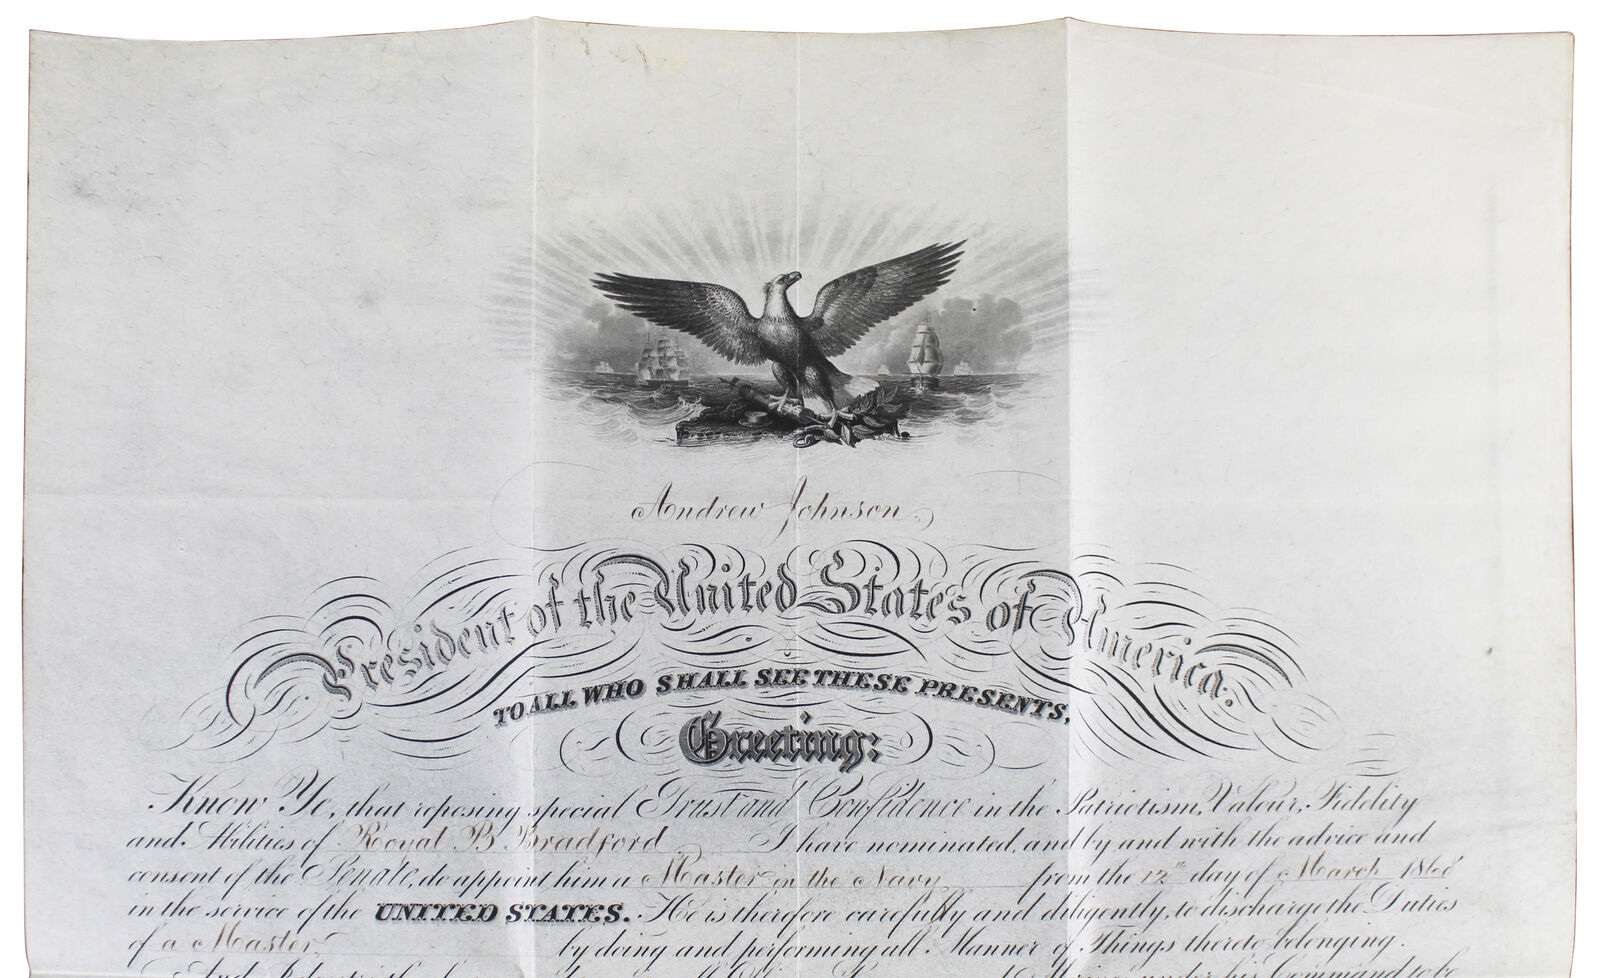 Andrew Johnson,
President of the United States of America.
TO ALL WHO SHALL SEE THESE PRESENTS,
Greeting:
Know Ye, that reposing special Trust and Confidence in the Patriotism, Valour, Fidelity
and Abilities of Royal B Bradford I have nominated, and by and with the advice and
consent of the Senate, do appoint him a Master in the Navy from the 12th day of March 1868
in the service of the UNITED STATES. He is therefore carefully and diligently, to discharge the Duties
of a Master, by doing and performing all Manner of Things thereto belonging.
And under his Command to be